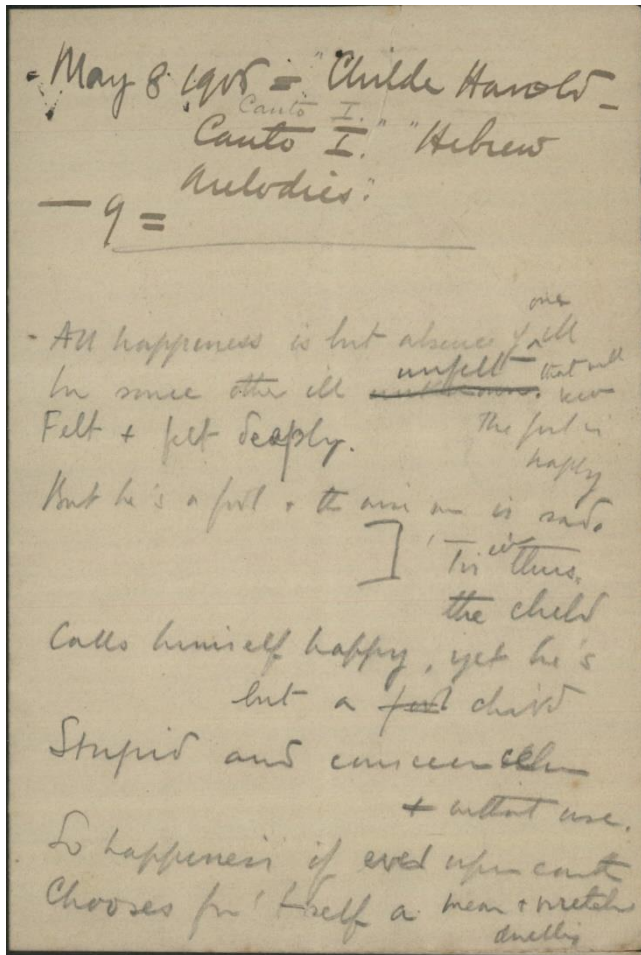 May 8 1905 = "Childe Harold –
Canto I.
Canto I." "Hebrew
Melodies".
— 9 =
one
All happiness is but absence of ill
unfelt that will
In some other ill
Felt + felt deeply. The fool is
happy
But he's a fool + the wise is sad.
'Tis thus.
the child
Calls himself happy, yet he's
but a fool child
Stupid and
+ without use.
So happiness if ever upon earth
Chooses for 'tself a mean + wretched
dwelling